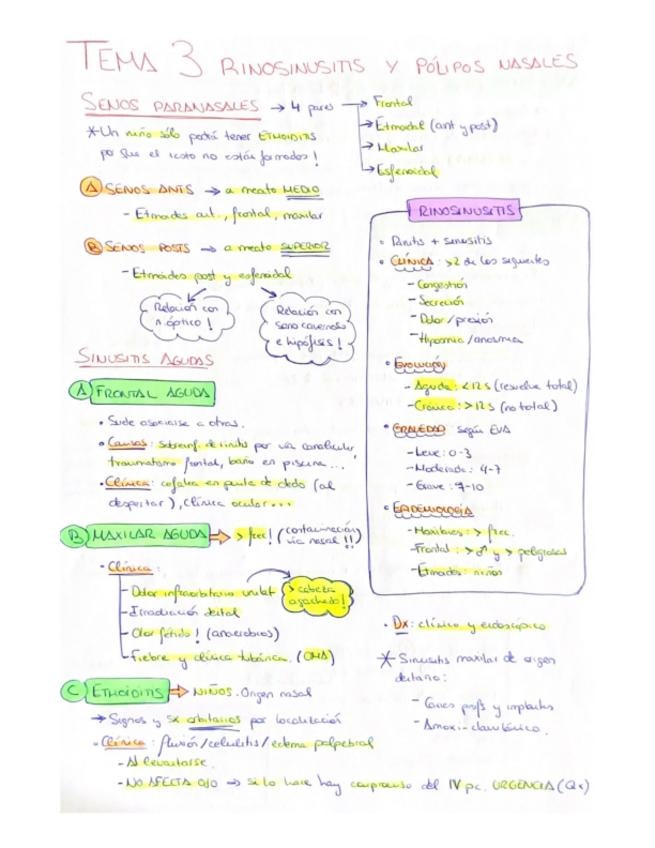 TEMA 3 RINOSINUSITIS Y PÓLIPOS NASALES
SENOS PARANASALES → 4 pares
→ Frontal
→ Etmoidal (ant y post)
→ Maxilar
→ Esfenoidal
*Un niño sólo podrá tener ETMOIDITIS
por que el resto no están formados!
A SENOS ANTS → a meato MEDIO
- Etmoides ant., frontal, maxilar
B SENOS POSTS → a meato SUPERIOR
- Etmoides post y esfenoidal
Relación con
n. óptico!
Relación con
seno cavernoso
e hipófisis!
SINUSITIS AGUDAS
A FRONTAL AGUDA
• Suele asociarse a otras.
• Causas: sobreinf. de rinitis por vía canalicular,
traumatismo frontal, baño en piscina...
• Clínica: cefalea en punta de dedo (al
despertar), clínica ocular...
B MAXILAR AGUDA ⇒ > frec! (contaminación
vía nasal!!)
• Clínica:
- Dolor infraorbitario unilat
> cabeza
agachada!
- Irradiación dental
- Olor fétido! (anaerobios)
- Fiebre y clínica tubárica. (OMA)
C ETMOIDITIS ⇒ NIÑOS. Origen nasal
→ Signos y sx orbitarios por localización
- Clínica: fluxión/celulitis/edema palpebral
- Al levantarse.
- NO AFECTA OJO → si lo hace hay compromiso del IV pc. URGENCIA (Qx)
RINOSINUSITIS
• Rinitis + sinusitis
• CLÍNICA: >2 de los siguientes
- Congestión
- Secreción
- Dolor/presión
- Hiposmia/anosmia
• Evolución
- Aguda: <12s (resolve total)
- Crónica: >12s (no total)
• GRAVEDAD según EVA
- Leve: 0-3
- Moderada: 4-7
- Grave: 7-10
• EPIDEMIOLOGÍA
- Maxilares: > frec.
- Frontal: > ♂ y > peligrosas
- Etmoides: niños
• Dx: clínico y endoscópico
* Sinusitis maxilar de origen
dentario:
- Caries profs y implantes
- Amoxi-clavulánico.